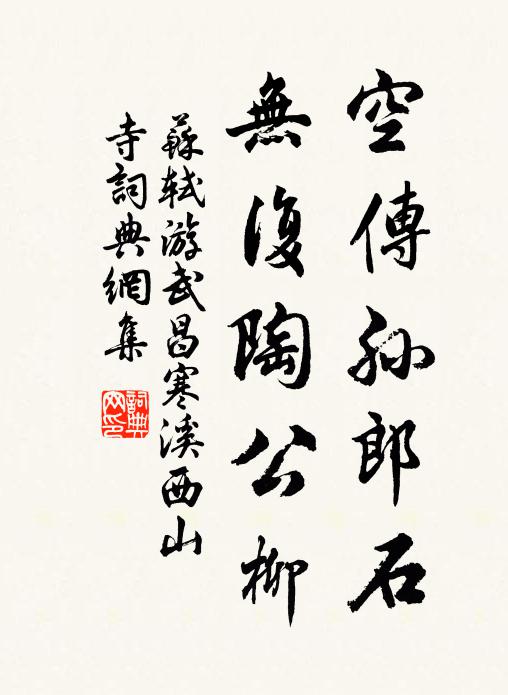 空傳孫郎石
無復陶公柳
蘇軾游武昌寒溪西山
寺詞典網集
詞典
网印